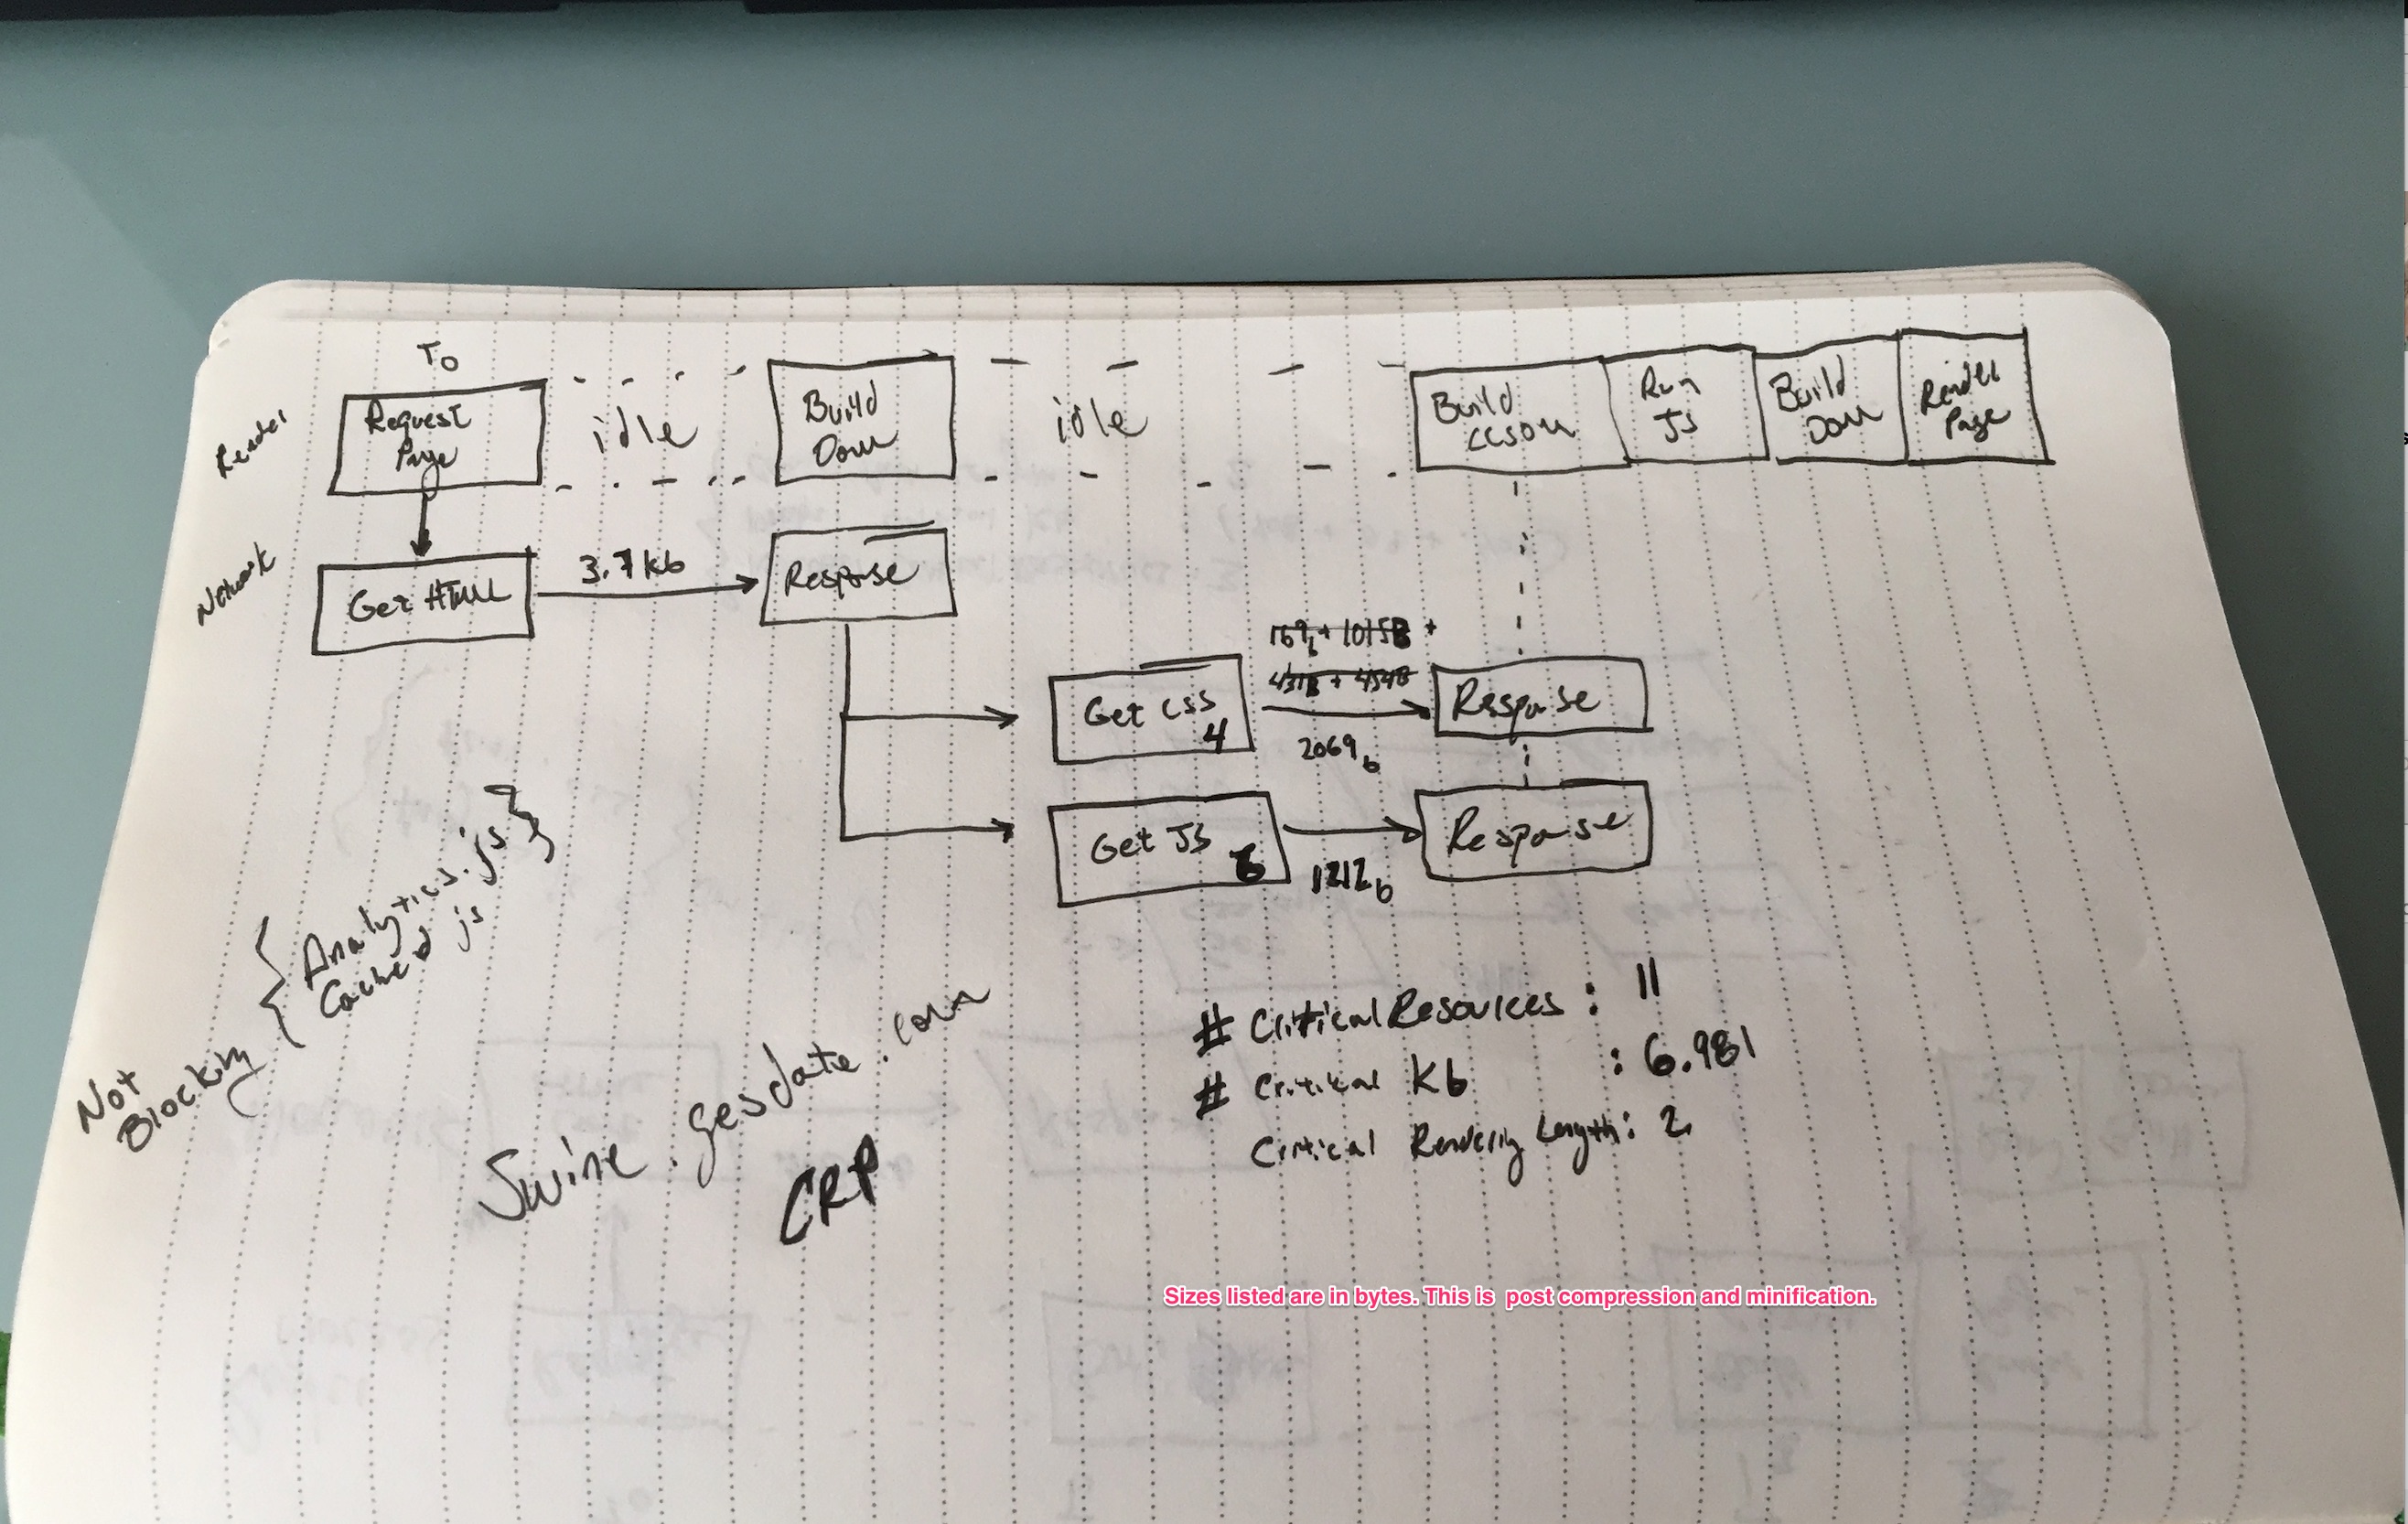 To
Render
Request
Page
idle
Build
Dom
idle
Build
CCSOM
Run
Js
Build
Dom
Render
Page
Network
Get HTML
3.7kb
Response
169b + 1015B +
431B + 454B
Get css
4
2069b
Response
Get JS
6
1212b
Response
Not
Blocking
{ Analytics.js }
Cached js
Swine.gesdate.com
CRP
# Critical Resources : 11
# Critical Kb : 6.981
Critical Rendering Length: 2
Sizes listed are in bytes. This is post compression and minification.